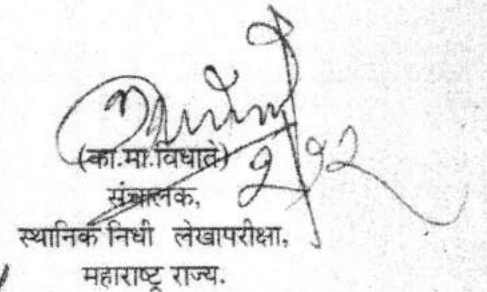 (का.मा.विधाते)
संचालक,
स्थानिक निधी लेखापरीक्षा,
महाराष्ट्र राज्य.